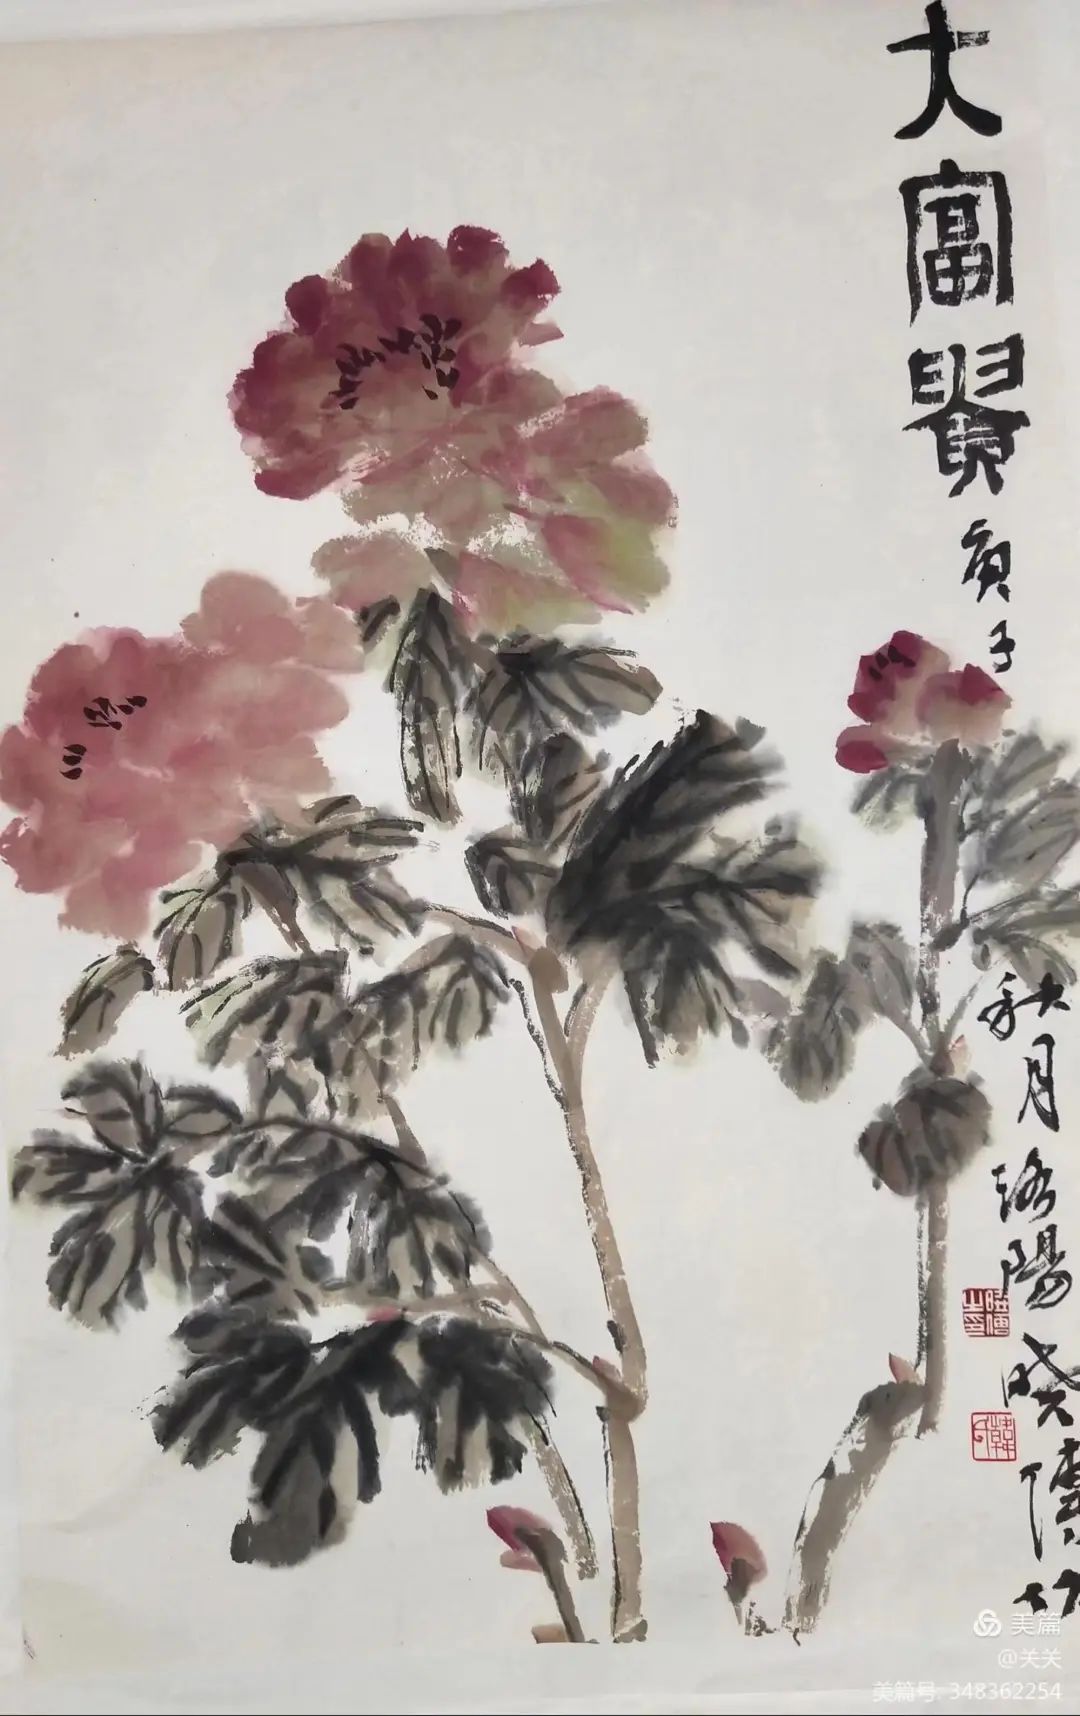 大富贵
庚子
秋月洛陽晓傳
美篇
@关关
美篇号: 348362254